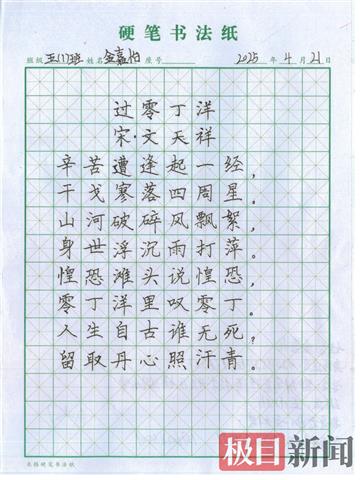 硬笔书法纸
班级 五(1)班 姓名 金嘉怡 座号 2025 年 4 月 21 日
过零丁洋
宋·文天祥
辛苦遭逢起一经，
干戈寥落四周星。
山河破碎风飘絮，
身世浮沉雨打萍。
惶恐滩头说惶恐，
零丁洋里叹零丁。
人生自古谁无死，
留取丹心照汗青。
极目新闻